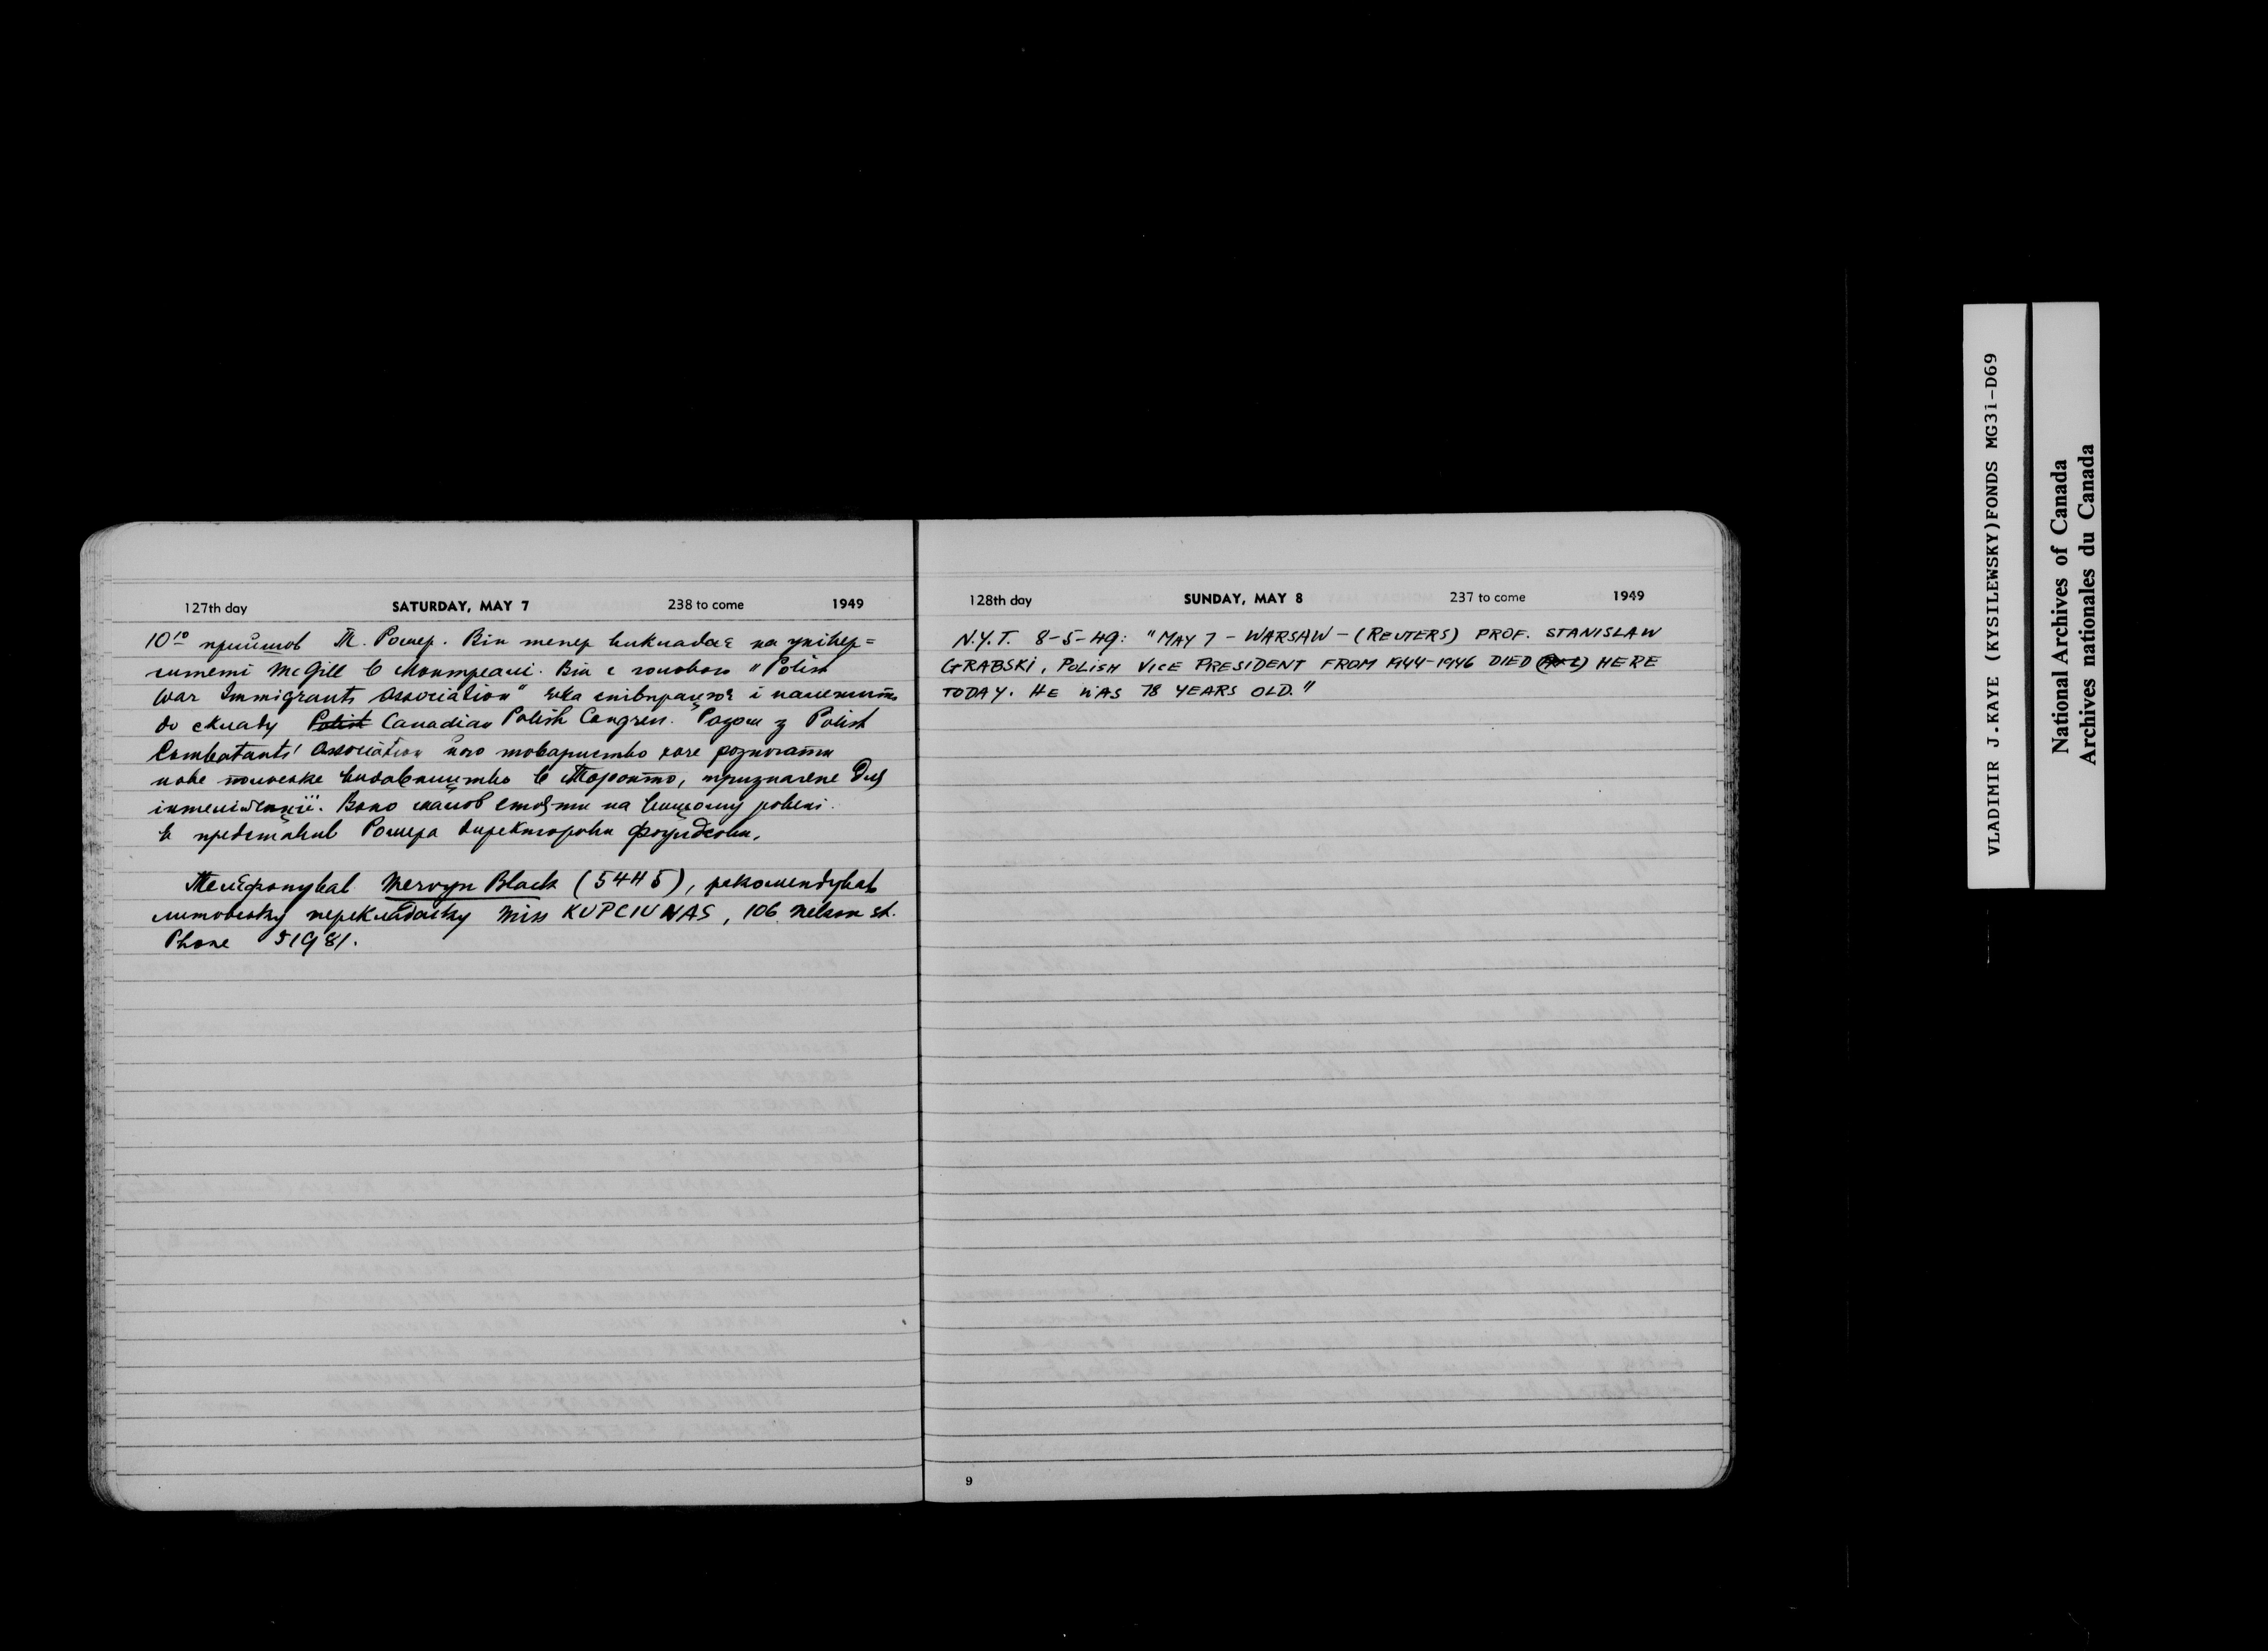 127th day SATURDAY, MAY 7 238 to come 1949
10¹⁰ прийшов Т. Ромер. Він тепер викладає на універ=
ситеті McGill в Монтреалі. Він є головою "Polish
War Immigrants Association" яка співпрацює і належить
до складу Polish Canadian Polish Congress. Разом з Polish
Combatants' Association його товариство хоче розпочати
нове польське видавництво в Торонто, призначене для
інтелігенції. Воно має стояти на вищому рівені.
Я представив Ромера директорови Фоулдсови.
Телєфонував Mervyn Black (5445), рекомендував
литовську перекладачку Miss KUPCIUNAS, 106 Nelson st.
Phone 51981.
128th day SUNDAY, MAY 8 237 to come 1949
N.Y.T. 8-5-49: "MAY 7 - WARSAW - (REUTERS) PROF. STANISLAW
GRABSKI, POLISH VICE PRESIDENT FROM 1944-1946 DIED HERE
TODAY. HE WAS 78 YEARS OLD."
9
VLADIMIR J.KAYE (KYSILEWSKY)FONDS MG31-D69
National Archives of Canada
Archives nationales du Canada